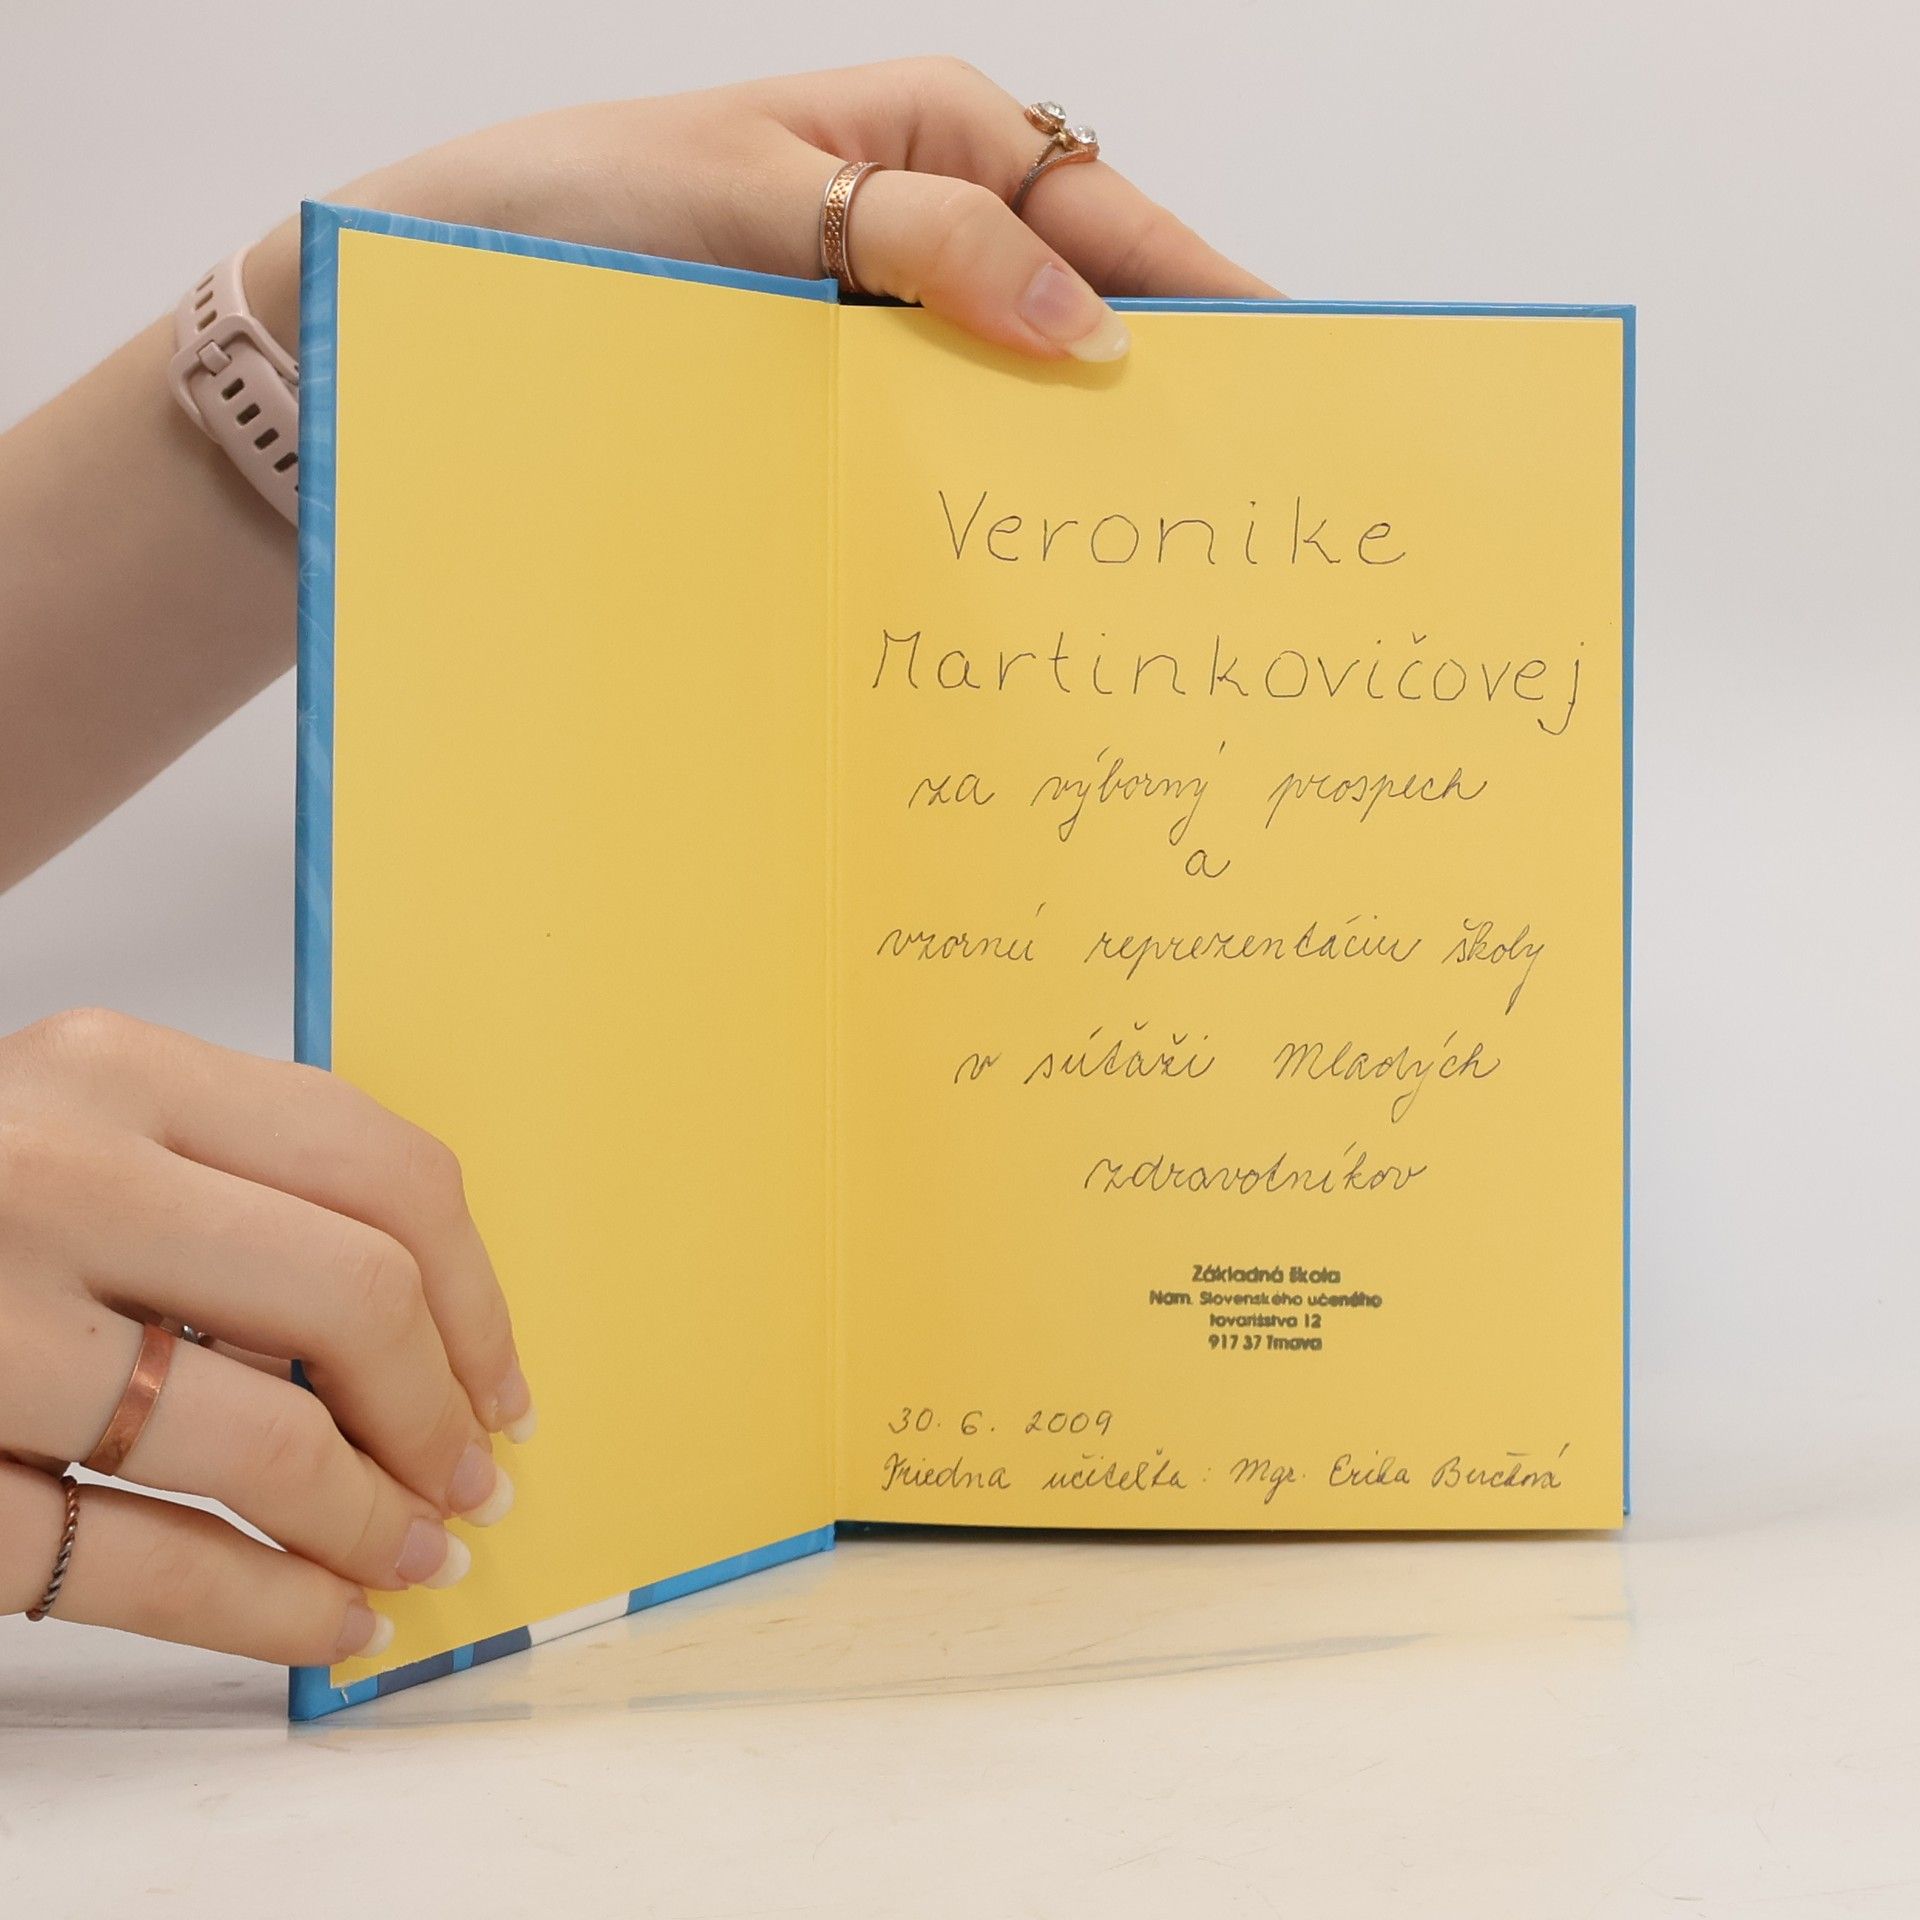 Veronike
Martinkovičovej
za výborný prospech
a
vzornú reprezentáciu školy
v súťaži Mladých
zdravotníkov
Základná škola
Nám. Slovenského učeného
tovarišstva 12
917 37 Trnava
30. 6. 2009
Triedna učiteľka: Mgr. Erika